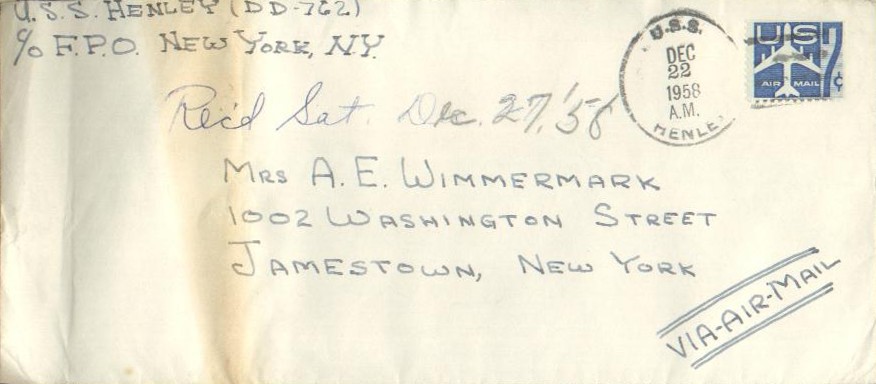 U.S.S. HENLEY (DD-762)
c/o F.P.O. NEW YORK, N.Y.
Rec'd Sat. Dec. 27, '58
U.S.S.
DEC
22
1958
A.M.
HENLEY
US
AIR MAIL
7¢
MRS A. E. WIMMERMARK
1002 WASHINGTON STREET
JAMESTOWN, NEW YORK
VIA-AIR-MAIL